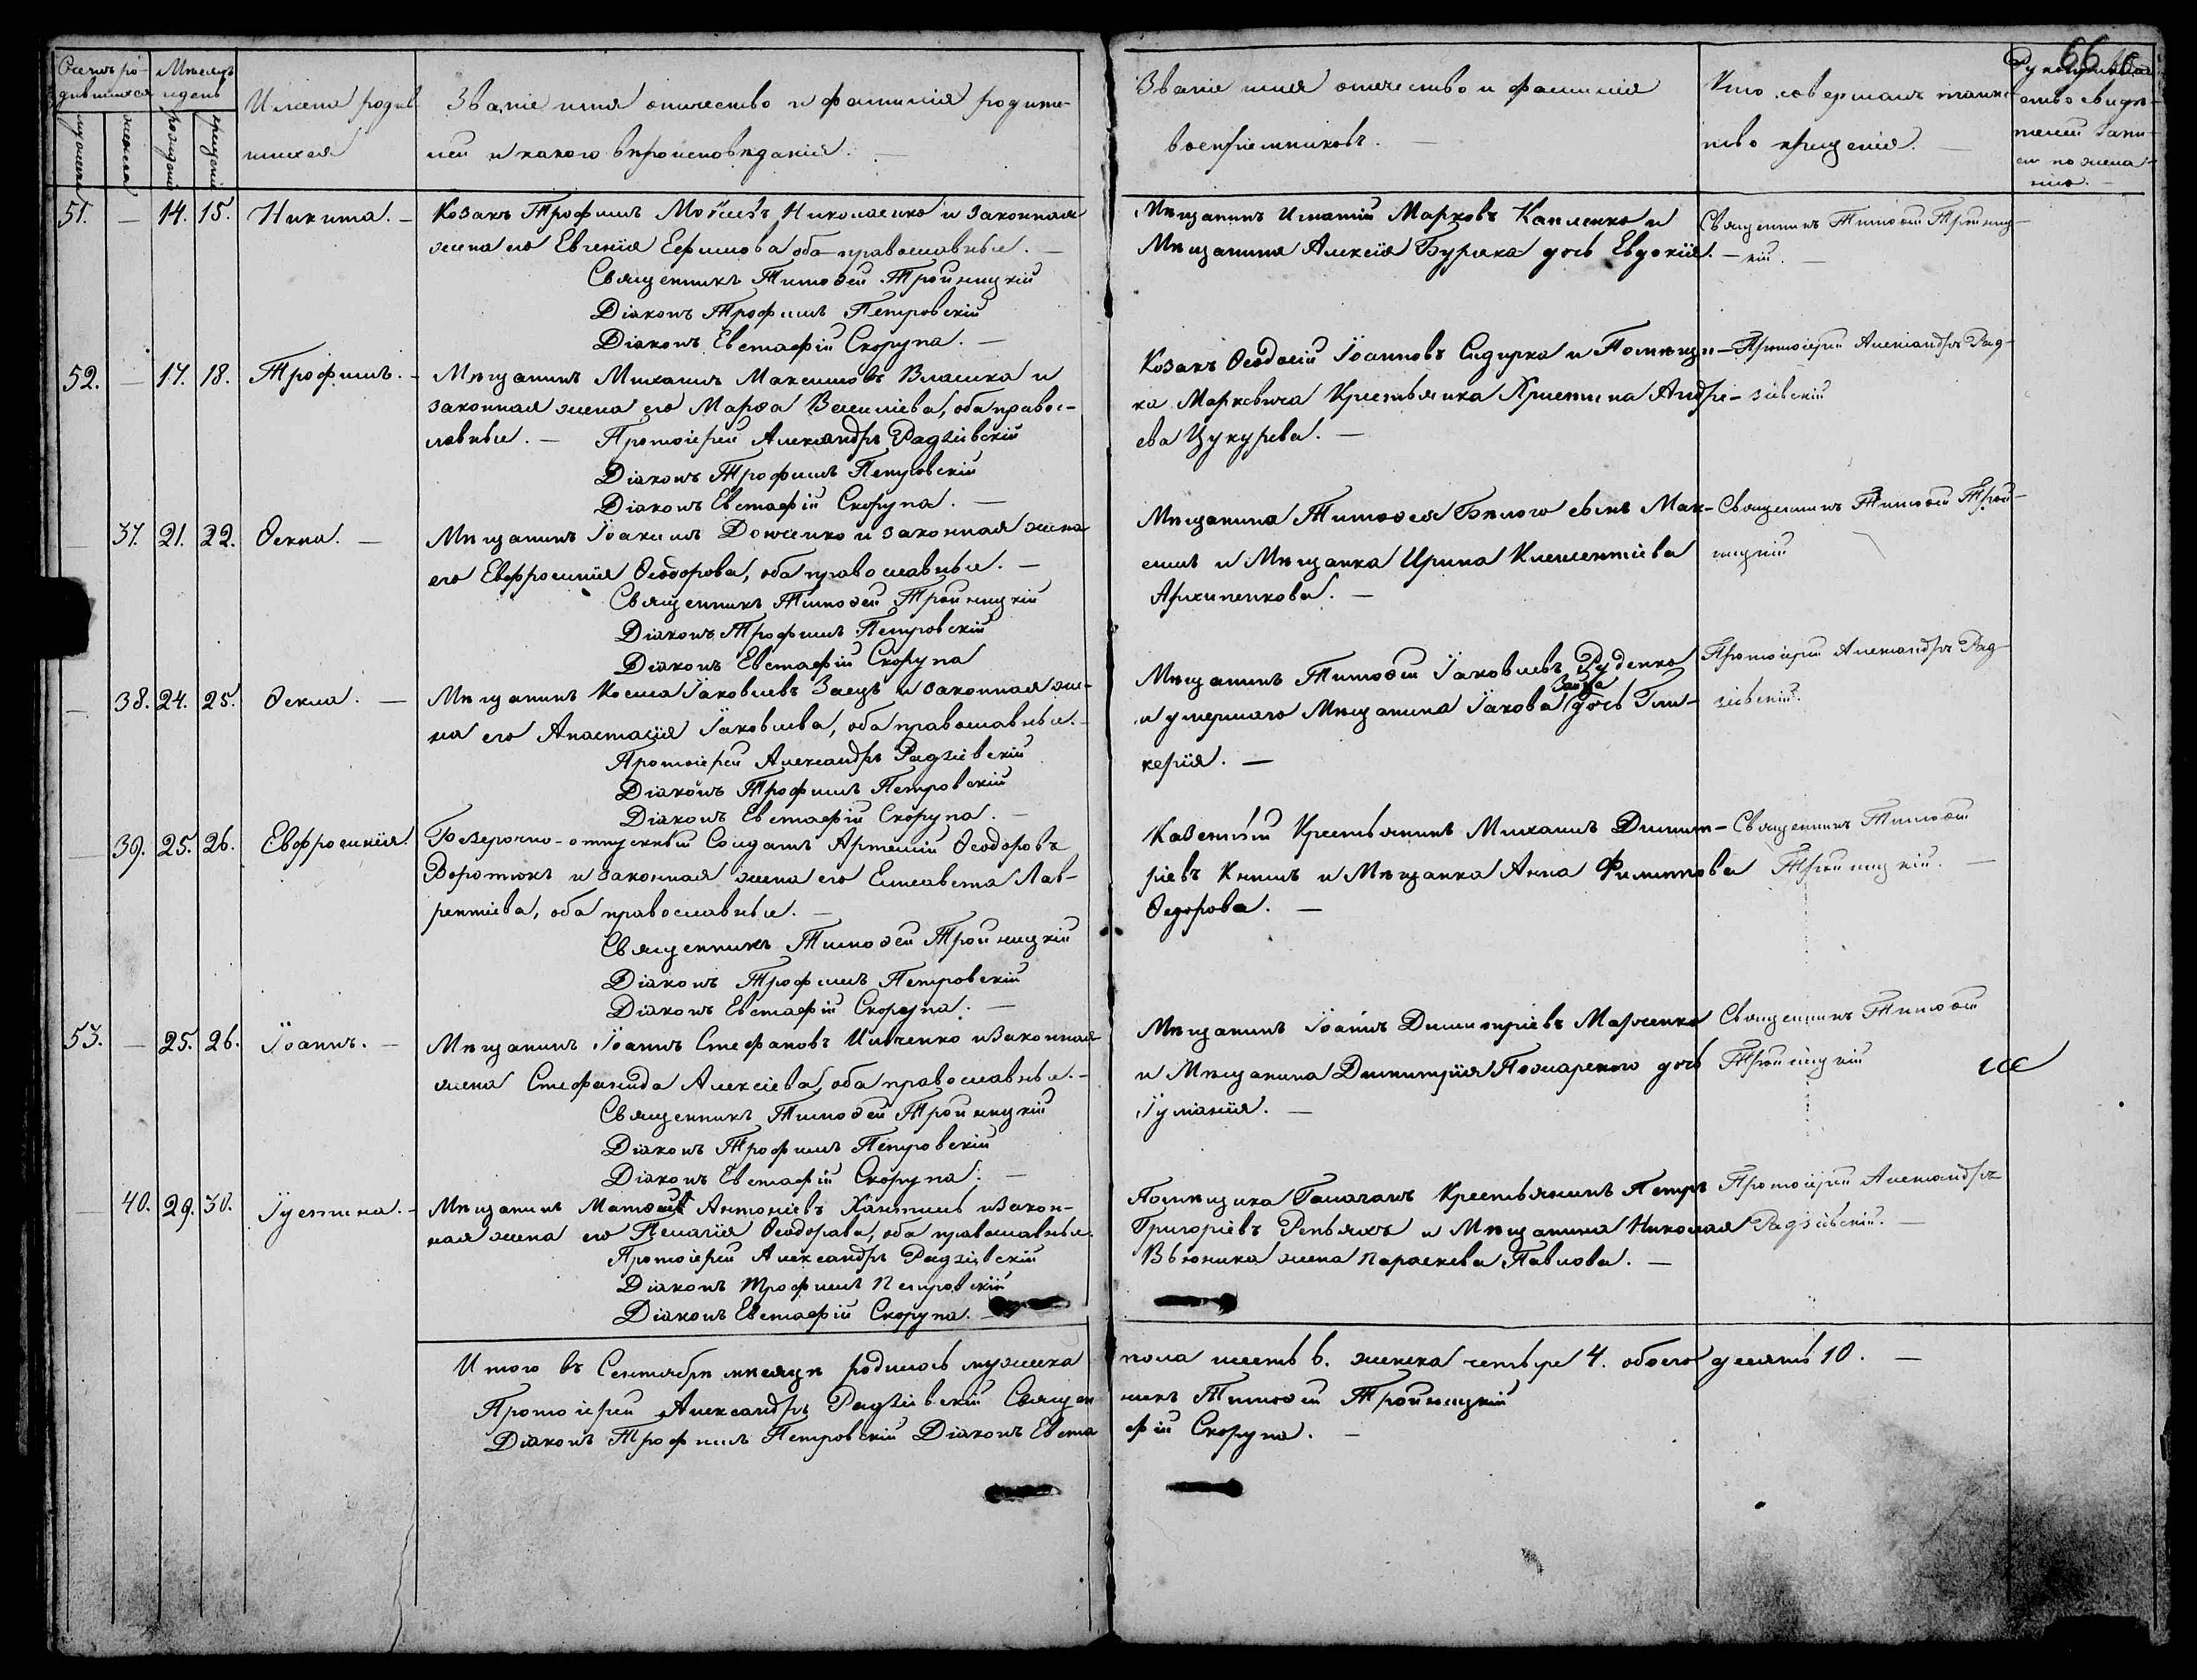 66
Счетъ ро-
дившихся
Мѣсяцъ
и день
мужеска
женска
рожденія
крещенія
Имена родив
шихся
Званіе имя отчество и фамилія родите-
лей и какого вѣроисповѣданія. —
Званіе имя отчество и фамилія
воспріемниковъ. —
Кто совершалъ таинс-
тво крещенія. —
Рукоприклад-
ство свидѣ-
телей запи-
си по жела-
нію. —
51. — 14. 15. Никита. —
Козакъ Трофимъ Моѵсеевъ Николаенко и законная
жена его Евгенія Ефимова оба православные. —
Священникъ Тимоѳей Тройницкій
Діаконъ Трофимъ Петровскій
Діаконъ Евстафій Скорупа. —
Мѣщанинъ Игнатій Марковъ Капленко и
Мѣщанина Алексія Буряка дочь Евдокія. —
Священникъ Тимоѳей Тройниц-
кій. —
52. — 17. 18. Трофимъ. —
Мѣщанинъ Михаилъ Максимовъ Влашка и
законная жена его Марѳа Василіева, оба правос-
лавные. — Протоіерей Александръ Радзіевскій
Діаконъ Трофимъ Петровскій
Діаконъ Евстафій Скорупа. —
Козакъ Ѳеодосій Іоанновъ Сидирка и Помѣщи-
ка Марковича Крестьянка Христина Андре-
ева Цукурева. —
Протоіерей Александръ Рад-
зіевскій
— 37. 21. 22. Ѳекла. —
Мѣщанинъ Іоакимъ Довженко и законная жена
его Евфросинія Ѳеодорова, оба православные. —
Священникъ Тимоѳей Тройницкій
Діаконъ Трофимъ Петровскій
Діаконъ Евстафій Скорупа
Мѣщанина Тимоѳея Бѣлого сынъ Мак-
симъ и Мѣщанка Ирина Климентіева
Архипенкова. —
Священникъ Тимоѳей Трой-
ницкій
— 38. 24. 25. Ѳекла. —
Мѣщанинъ Косма Іаковлевъ Заецъ и законная же-
на его Анастасія Іаковлева, оба православные. —
Протоіерей Александръ Радзіевскій
Діаконъ Трофимъ Петровскій
Діаконъ Евстафій Скорупа. —
Мѣщанинъ Тимоѳей Іаковлевъ Руденко
Зайца
и умершаго Мѣщанина Іакова дочь Гли-
керія. —
Протоіерей Александръ Рад-
зіевскій.
— 39. 25. 26. Евфросинія.
Безсрочно-отпускный Солдатъ Артемій Ѳеодоровъ
Воротюкъ и законная жена его Елисавета Лав-
рентіева, оба православные. —
Священникъ Тимоѳей Тройницкій
Діаконъ Трофимъ Петровскій
Діаконъ Евстафій Скорупа. —
Казенный Крестьянинъ Михаилъ Димит-
ріевъ Книшъ и Мѣщанка Анна Филиппова
Ѳедорова. —
Священникъ Тимоѳей
Тройницкій. —
53. — 25. 26. Іоаннъ. —
Мѣщанинъ Іоаннъ Стефановъ Ильченко и законная
жена Стефанида Алексіева, оба православные. —
Священникъ Тимоѳей Тройницкій
Діаконъ Трофимъ Петровскій
Діаконъ Евстафій Скорупа. —
Мѣщанинъ Іоаннъ Димитріевъ Марченко
и Мѣщанина Димитрія Пожарского дочь
Іуліанія. —
Священникъ Тимоѳей
Тройницкій
— 40. 29. 30. Іустина. —
Мѣщанинъ Матѳей Антоніевъ Хантиль и закон-
ная жена его Пелагія Ѳеодорова, оба православные.
Протоіерей Александръ Радзіевскій
Діаконъ Трофимъ Петровскій
Діаконъ Евстафій Скорупа. —
Помѣщика Галагана Крестьянинъ Петръ
Григоріевъ Репьяхъ и Мѣщанина Николая
Вьюника жена Параскева Павлова. —
Протоіерей Александръ
Радзіевскій. —
Итого въ Сентябрѣ мѣсяцѣ родилось мужеска пола шесть 6. женска четыре 4. обоего десять 10. —
Протоіерей Александръ Радзіевскій Священникъ Тимоѳей Тройницкій
Діаконъ Трофимъ Петровскій Діаконъ Евстафій Скорупа. —